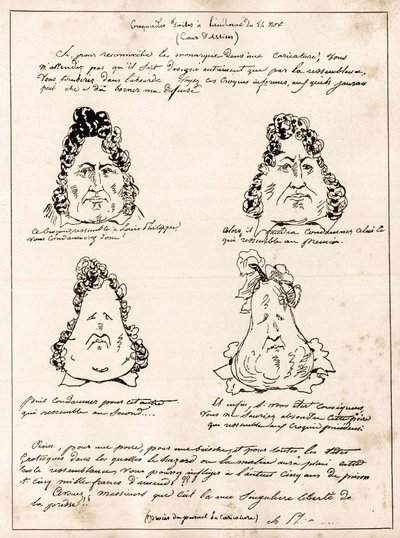 Croquades faites à l'audience du 14 Nov.
(Cour d'Assises)
Si, pour reconnaître le monarque dans une caricature, vous
n'attendez pas qu'il soit désigné autrement que par la ressemblance,
vous tomberez dans l'absurde. Voyez ces croquis informes, auxquels j'aurais
peut être dû borner ma défense
Ce Croquis ressemble à Louis Philippe,
vous condamnerez donc?
Alors, il faudra condamner celui-ci
qui ressemble au premier.
puis condamner pour cet autre
qui ressemble au second....
Et enfin, si vous êtes conséquens,
vous ne sauriez absoudre cette poire
qui ressemble aux croquis précédens.
Ainsi, pour une poire, pour une brioche, et pour toutes les têtes
grotesques dans lesquelles le hazard ou la malice aura placé cette
triste ressemblance, vous pourrez infliger à l'auteur cinq ans de prison
et cinq mille francs d'amende!!
Avouez, messieurs que c'est là une singulière liberté de
la presse!!